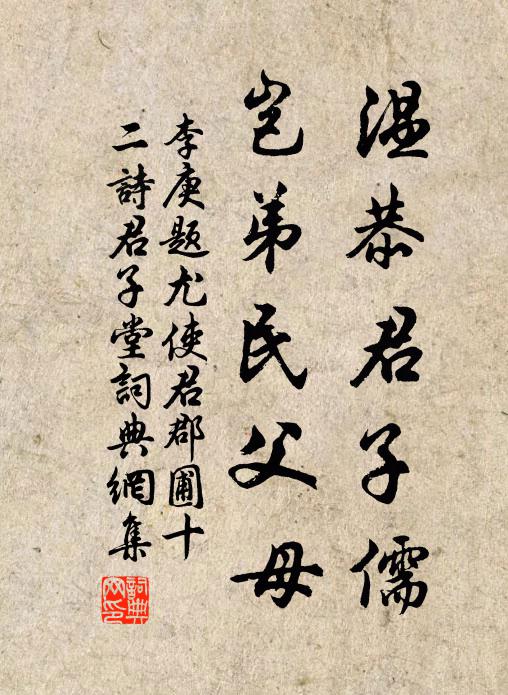 温恭君子儒
岂弟民父母
李庚题尤使君郡圃十
二詩君子堂詞典網集
詞典网印